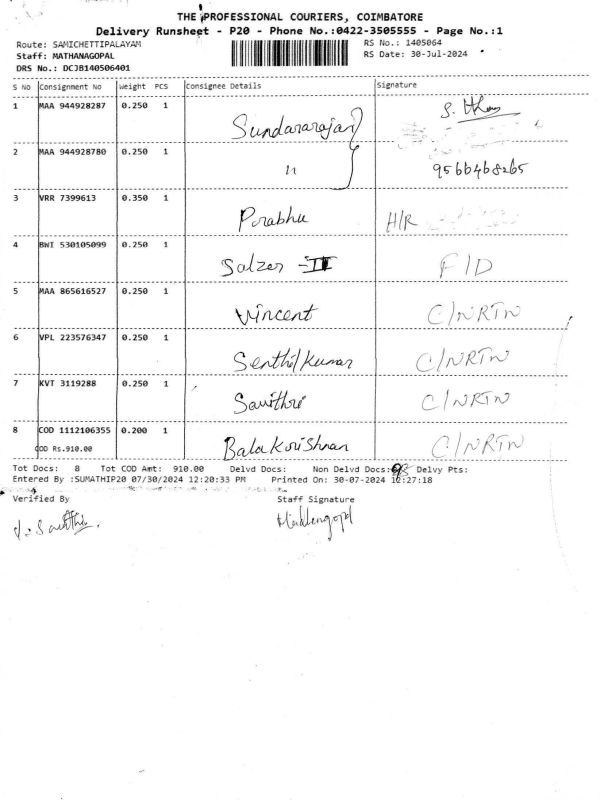 THE PROFESSIONAL COURIERS, COIMBATORE
Delivery Runsheet - P20 - Phone No.:0422-3505555 - Page No.:1
Route: SAMICHETTIPALAYAM RS No.: 1405064
Staff: MATHANAGOPAL RS Date: 30-Jul-2024
DRS No.: DCJB140506401
S No Consignment No Weight PCS Consignee Details Signature
1 MAA 944928287 0.250 1 Sundararajan
2 MAA 944928780 0.250 1 " 9566468265
3 VRR 7399613 0.350 1 Prabhu H/R
4 BWI 530105099 0.250 1 Salzer - II F/D
5 MAA 865616527 0.250 1 Vincent C/NRTN
6 VPL 223576347 0.250 1 Senthil Kumar C/NRTN
7 KVT 3119288 0.250 1 Savithri C/NRTN
8 COD 1112106355 0.200 1 Balakrishnan C/NRTN
COD Rs.910.00
Tot Docs: 8 Tot COD Amt: 910.00 Delvd Docs: Non Delvd Docs: Delvy Pts:
Entered By :SUMATHIP20 07/30/2024 12:20:33 PM Printed On: 30-07-2024 12:27:18
Verified By Staff Signature